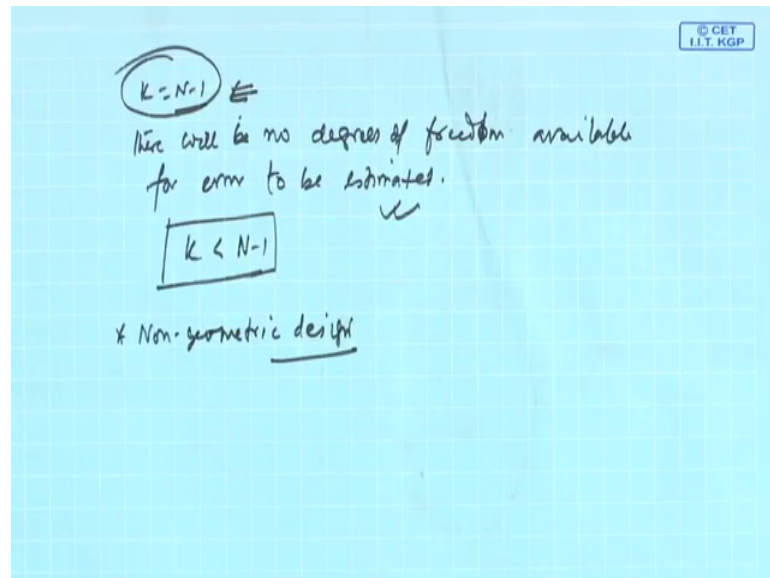 © CET
I.I.T. KGP
K = N-1
There will be no degrees of freedom available
for error to be estimates.
K < N-1
* Non-geometric design